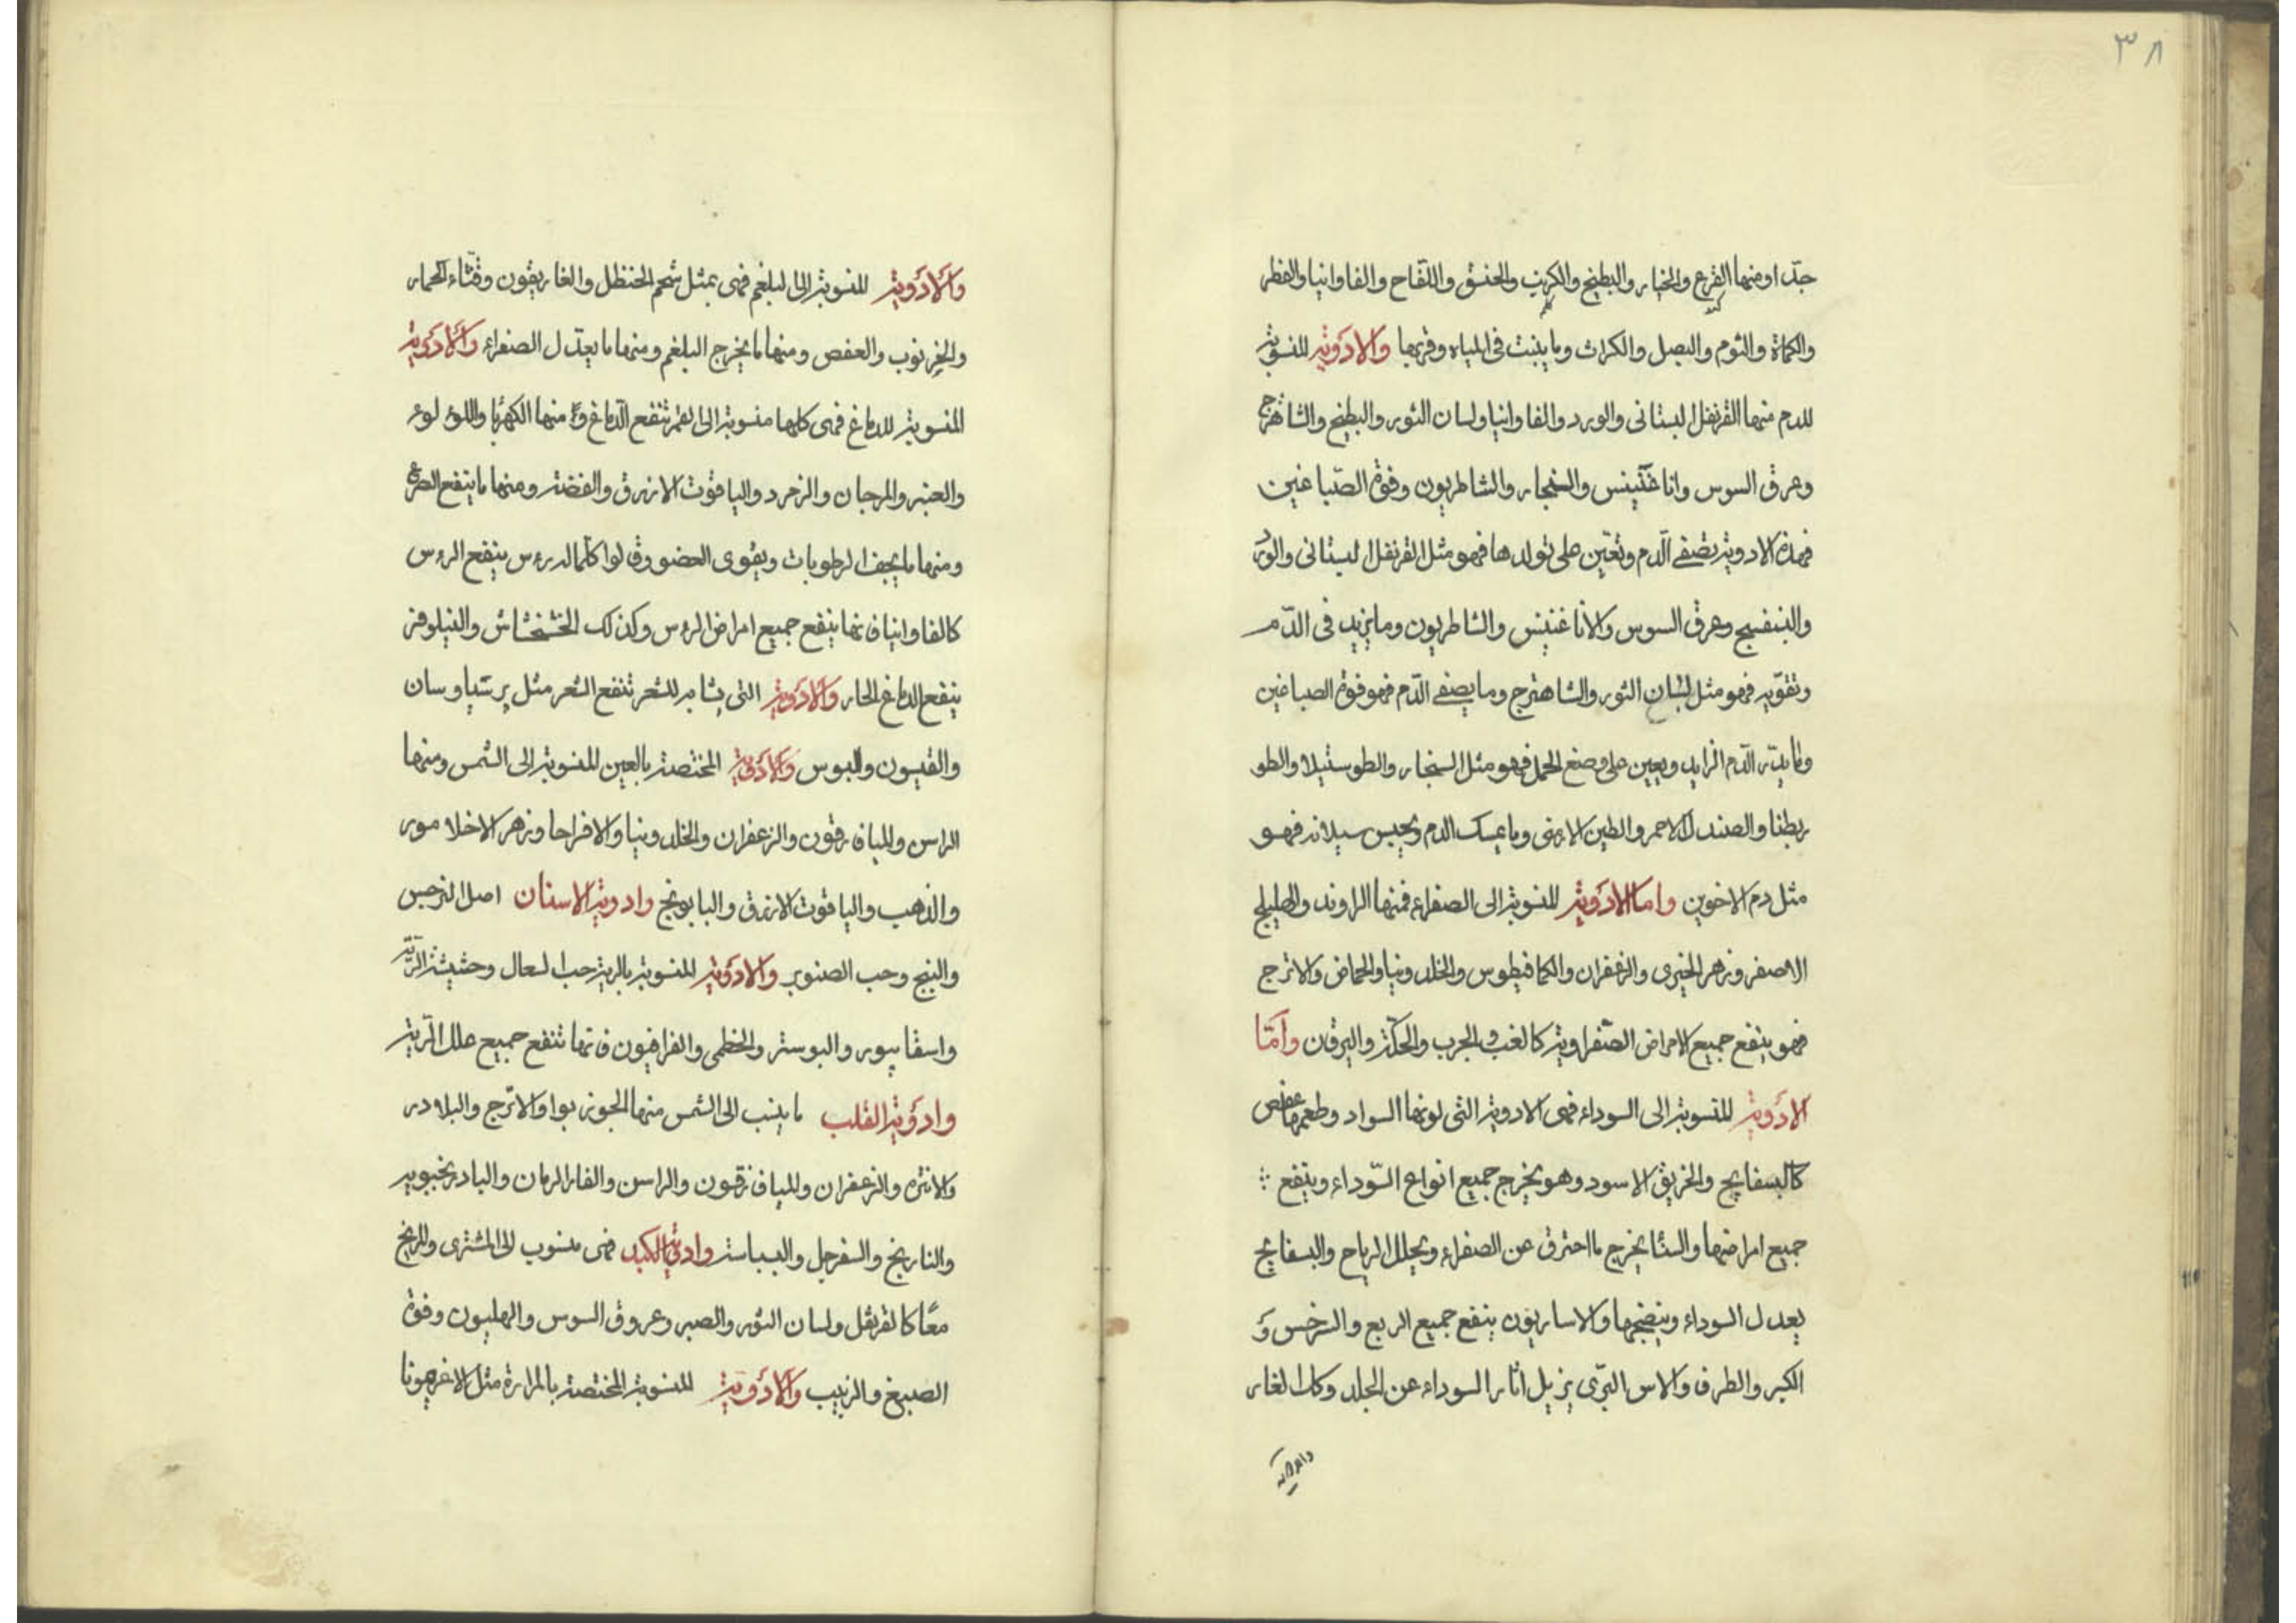 ٣٨
جدّا ومنها القرع والخيار والبطيخ والكرنب والخس واللقاح والفاوانيا والفطر
والكماة والثوم والبصل والكراث وما ينبت فى المياه وقربها والادوية المنسوبة
للدم منها القرنفل البستانى والورد والفاوانيا ولسان الثور والبطيخ والشاهترج
وعرق السوس واناغنينس والسنجار والشاطريون وفوة الصبّاغين
فهذه الادوية يصفى الدّم وتعين على تولدها فهو مثل القرنفل البستانى والورد
والبنفسج وعرق السوس والاناغنينس والشاطريون وما يزيد فى الدّم
وتقويه فهو مثل لسان الثور والشاهترج وما يصفى الدّم فهو فوة الصباغين
وما يدر الدّم الزايد ويعين على وضع الحمل فهو مثل السنجار والطوسنيلا والطو
ريطنا والصندل الاحمر والطين الارمنى وما يمسك الدم ويحبس سيلانه فهو
مثل دم الاخوين واما الادوية المنسوبة الى الصفراء فمنها الراوند والهليلج
الاصفر وزهر الخيرى والزعفران والكمافيطوس والخلدونيا والحماض والاترج
فهو ينفع جميع الامراض الصّفراوية كالغب والجرب والحكّة واليرقان وامّا
الادوية المنسوبة الى السوداء فهى الادوية التى لونها السواد وطعمها عفص
كالبسفايج والخربق الاسود وهو يخرج جميع انواع السّوداء وينفع
جميع امراضها والسنا يخرج ما احترق عن الصفراء ويحلل الرياح والبسفايج
يعدل السوداء وينضجها والاساريون ينفع جميع الربع والسرخس وَ
الكبر والطرف والاس البرّى يزيل اثار السوداء عن الجلد وكذا الغار
والادوية
والادوية المنسوبة الى البلغم فهى بمثل شحم الحنظل والغاريقون وقثّاء الحمار
والخرنوب والعفص ومنها ما يخرج البلغم ومنها ما يعدل الصفراء والادوية
المنسوبة للدماغ فهى كلها منسوبة الى القمر تنفع الدّماغ وَ منها الكهربا واللؤلوء
والعنبر والمرجان والزمرد والياقوت الازرق والفضة ومنها ما ينفع الصرع
ومنها ما يجفف الرطوبات ويقوى العضو وقالوا كلما له رءوس ينفع الرءوس
كالفاوانيا فانها ينفع جميع امراض الرءوس وكذلك الخشخاش والنيلوفر
ينفع الدماغ الحار والادوية التى يشابه للشعر تنفع الشعر مثل برشياوسان
والقيسون والبوس والادوية المختصة بالعين المنسوبة الى الشمس ومنها
الراسن والميافرقون والزعفران والخلدونيا والافراحا وزهر الاخلامور
والذهب والياقوت الازرق والبابونج وادوية الاسنان اصل النرجس
والبنج وحب الصنوبر والادوية المنسوبة بالرية حب السعال وحشيشة الرّية
واسقابيور والبوستر والخطمى والفرافيون فانها تنفع جميع علل الرّية
وادوية القلب ما ينسب الى الشمس منها الجوز بوا والاترّج والبلادر
والانتره والزعفران والميافرقون والراسن والفار الرمان والبادرنجبويه
والنارنج والسفرجل والبسباسة وادوية الكبد فهى منسوب الى المشترى والمريخ
معًا كالقرنفل ولسان الثور والصبر وعروق السوس والهليون وفوة
الصبيغ والزبيب والادوية المنسوبة المختصة بالمرارة مثل الاغرهونا